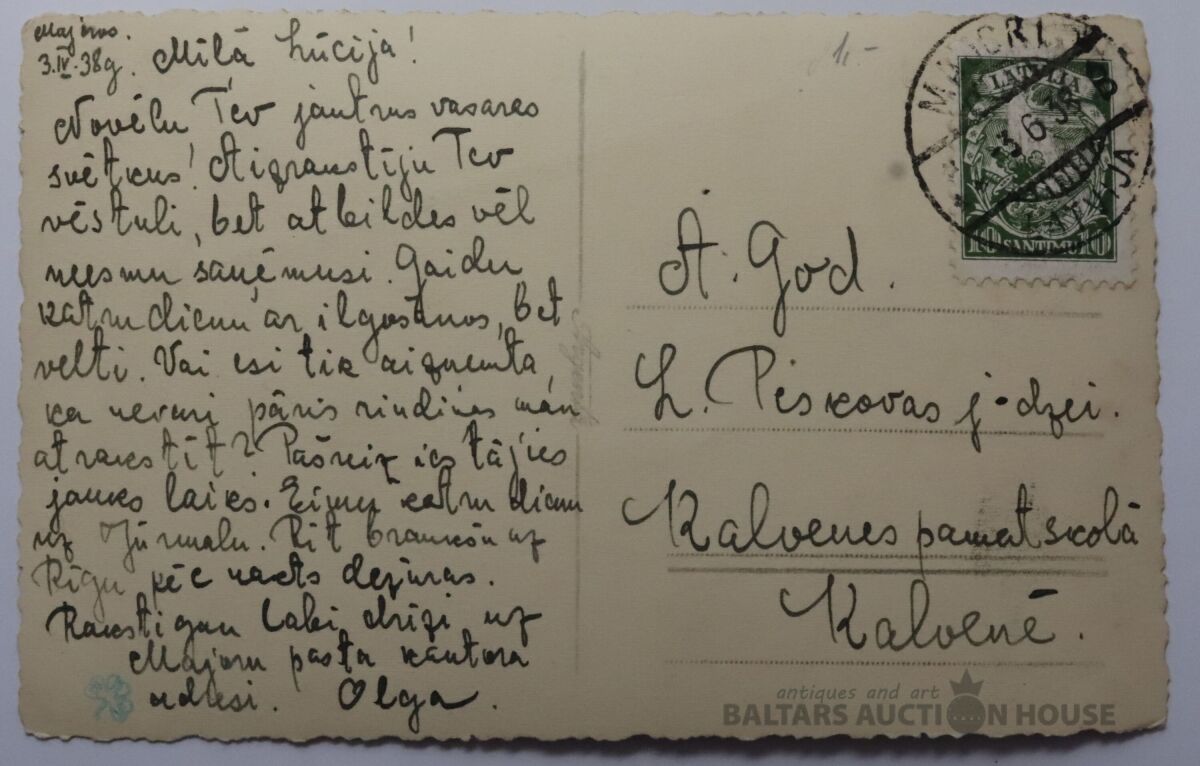 Majoros.
3.IV.38g. Milā Lūcija!
Novēlu Tev jautrus vasaras
svētkus! Aizrakstīju Tev
vēstuli, bet atbildes vēl
neesmu saņēmusi. Gaidu
katru dienu ar ilgošanos, bet
velti. Vai esi tik aizņemta,
ka nevari pāris rindiņas man
atrakstīt? Pašreiz iestājies
jauks laiks. Eimu katru dienu
uz Jūrmalu. Rīt braukšu uz
Rīgu pēc nakts dežūras.
Raksti gan labi drīzi uz
Majoru pasta kantora
adresi. Olga.
1-
MAJORI
3 6 38
LATVIJA
LATVIJA
10 SANTIMU 10
A. God.
L. Piskovas j-dzei.
Kalvenes pamatskolā
Kalvenē.
antiques and art
BALTARS AUCTION HOUSE